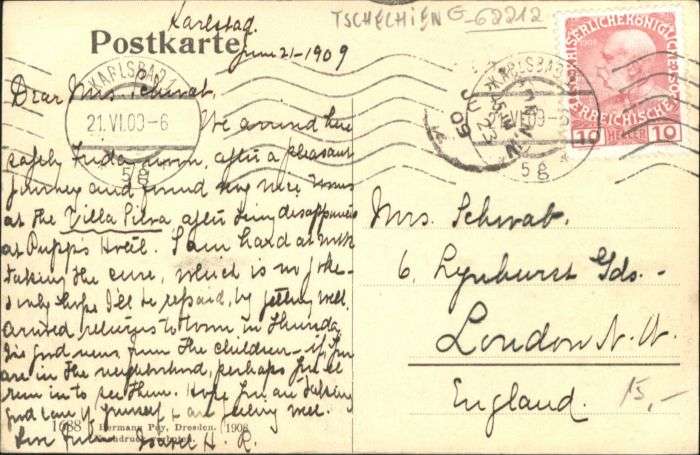 Karlstad.
TSCHECHIEN G-68212
Postkarte
June 21-1909
KARLSBAD 1
21.VI.09-6
5g
KARLSBAD
VI.09-6
5g
JU 09
KAISERLICHE KÖNIGL
ÖSTERREICHISCHE
10 HELLER 10
Dear Mrs. Schwab.
We arrived here
safely Friday, after a pleasant
journey and found very nice rooms
at the Villa Silva after being disappointed
at Pupp's Hotel. I am hard at work
taking the cure, which is no joke-
I only hope I'll be repaid, by getting well.
returns to town in
good news from the children - if you
are in the neighborhood, perhaps you'll
run in to see them. Hope you are taking
good care of yourself & are feeling well.
H. R.
1688 Hermann Poy, Dresden. 1908
Nachdruck verboten.
Mrs. Schwab.
6, Lynhurst Gds.-
London N.W.
England.
15,-